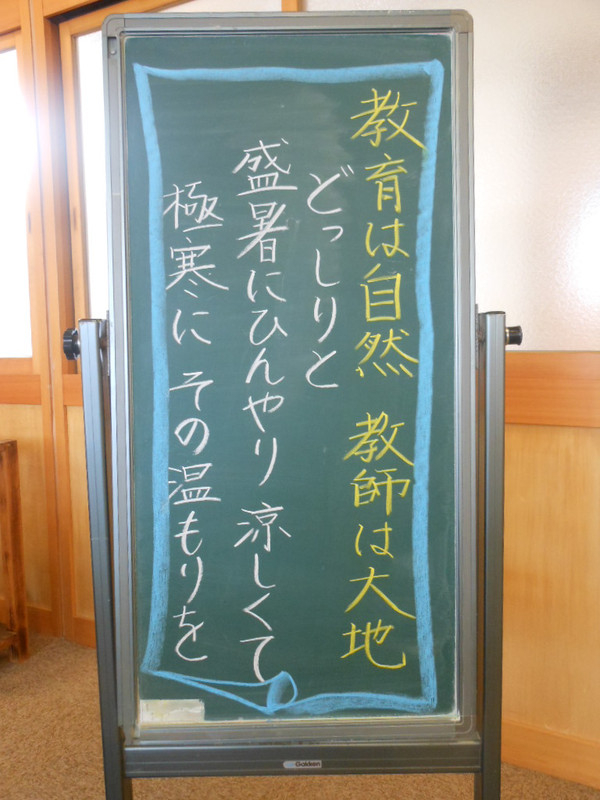 教育は自然　教師は大地
どっしりと
盛暑にひんやり 涼しくて
極寒に その温もりを
Gakken